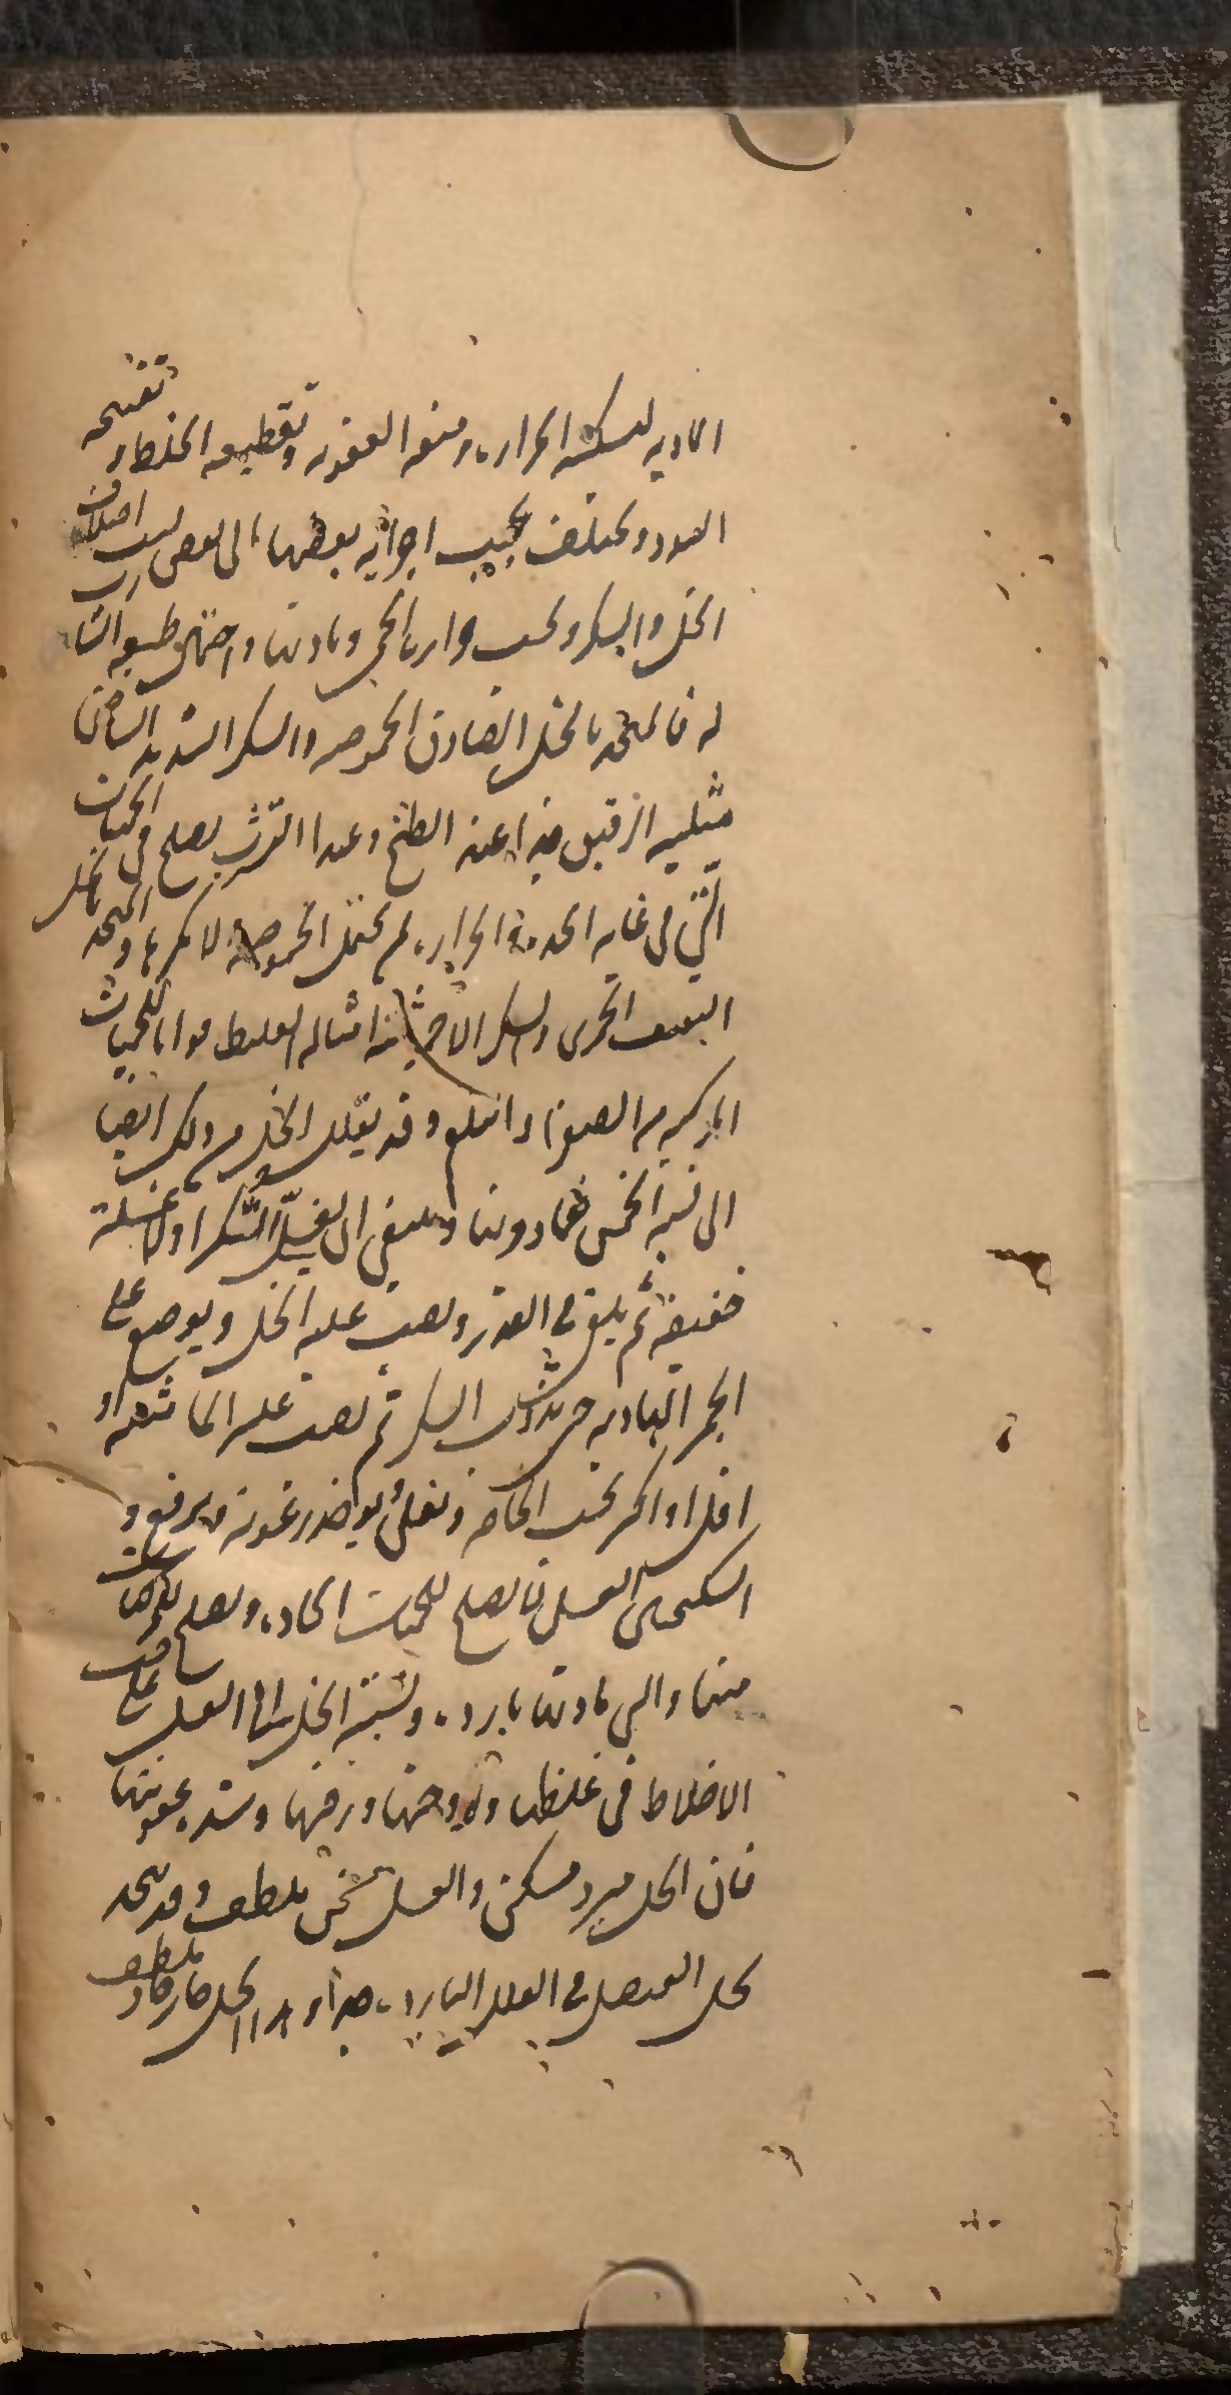 الادويه لتسكينه الحراره ومنعه العفونه وتقطيعه الخلط وتفتيحه
السدد ويختلف بحسب اجزائه بعضها الى بعض اختلاف
الخل والسكر وبحسب حراره الحمى ومادتها واحتمال طبيعه الشارب
له فالمتخذ بالخل الصادق الحموضه والسكر الشديد البياض
مثليه الرقيق جدا عند الطبخ وعند الشرب يصلح فى الحميات
التى فى غايه الحده الحراره لم يحتمل الحموضه لا مكرها والمتخذ بالخل
الثقيف الخمرى والسكر الاحمر ثلاثه امثاله الغليظ قواما للحميات
المركبه من الصفرا والبلغم وقد يقلل الخل من ذلك ايضا
الى نسبه الخمس فما دونها وينبغى ان يغسل السكر اولا غسلة
خفيفة ثم يلقى فى القدر ويصب عليه الخل ويوضع على
الجمر الهاديه حتى يذوب السكر ثم يصب عليه الماء مثله او
اقل او اكثر بحسب الحاجه ويغلى ويوخذ رغوته ويرفع و
السكنجبين العسلى فانا يصلح للحميات الحاده ويصلح للمركبات
منها والتى مادتها بارده ونسبة الخل الى العسل على حسب
الاخلاط فى غلظها ولزوجتها ورقتها وشده عفونتها
فان الخل مبرد مسكن والعسل مسخن ملطف وقد يتخذ
بخل العنصل فى العلل البارده جدا وهذا الخل حار حاد ملطف